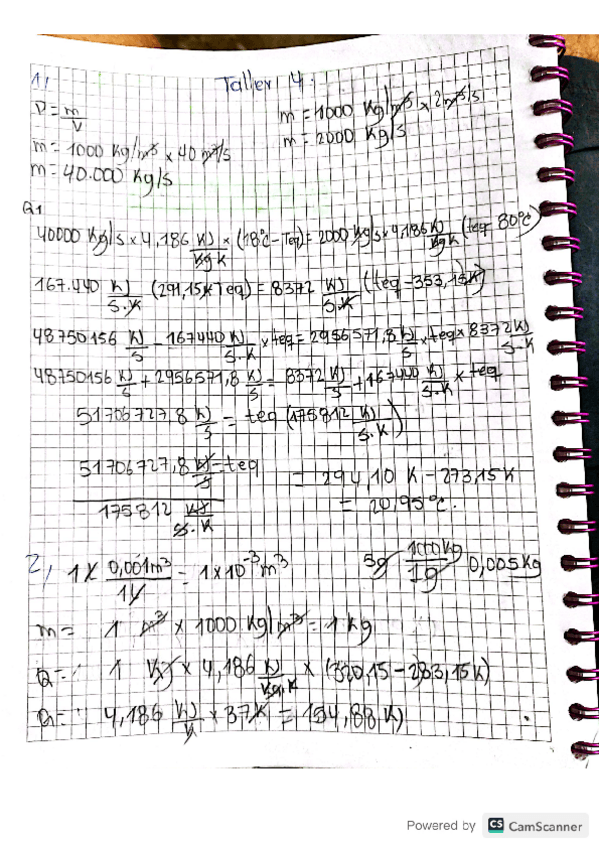 Taller 4.
1)
D = m/V
m = 1000 Kg/m³ x 40 m³/s
m = 40.000 Kg/s
m = 1000 Kg/m³ x 2 m³/s
m = 2000 Kg/s
Q1
40000 Kg/s x 4,186 KJ/Kg K x (18°C - Teq) = 2000 Kg/s x 4,186 KJ/Kg K (teq 80°C)
167.440 KJ/S.K (291,15K Teq) = 8372 KJ/S.K (teq - 353,15K)
48750156 KJ/S - 167440 KJ/S.K x teq = 2956571,8 KJ/S x teq x 8372 KJ/S-K
48750156 KJ/S + 2956571,8 KJ/S = 8372 KJ/S + 167440 KJ/S.K x teq
51706727,8 KJ/S = teq (175812 KJ/S.K)
51706727,8 KJ/S = teq
175812 KJ/S.K
= 294,10 K - 273,15K
= 20,95°C.
2) 1 x 0,001m³/1L = 1x10⁻³ m³
5g 1000Kg/1g 0,005Kg
m = 1 m³ x 1000 Kg/m³ = 1 Kg
Q = 1 Kg x 4,186 KJ/Kg.K x (320,15 - 283,15K)
Q = 4,186 KJ/K x 37K = 154,88 KJ
Powered by CS CamScanner